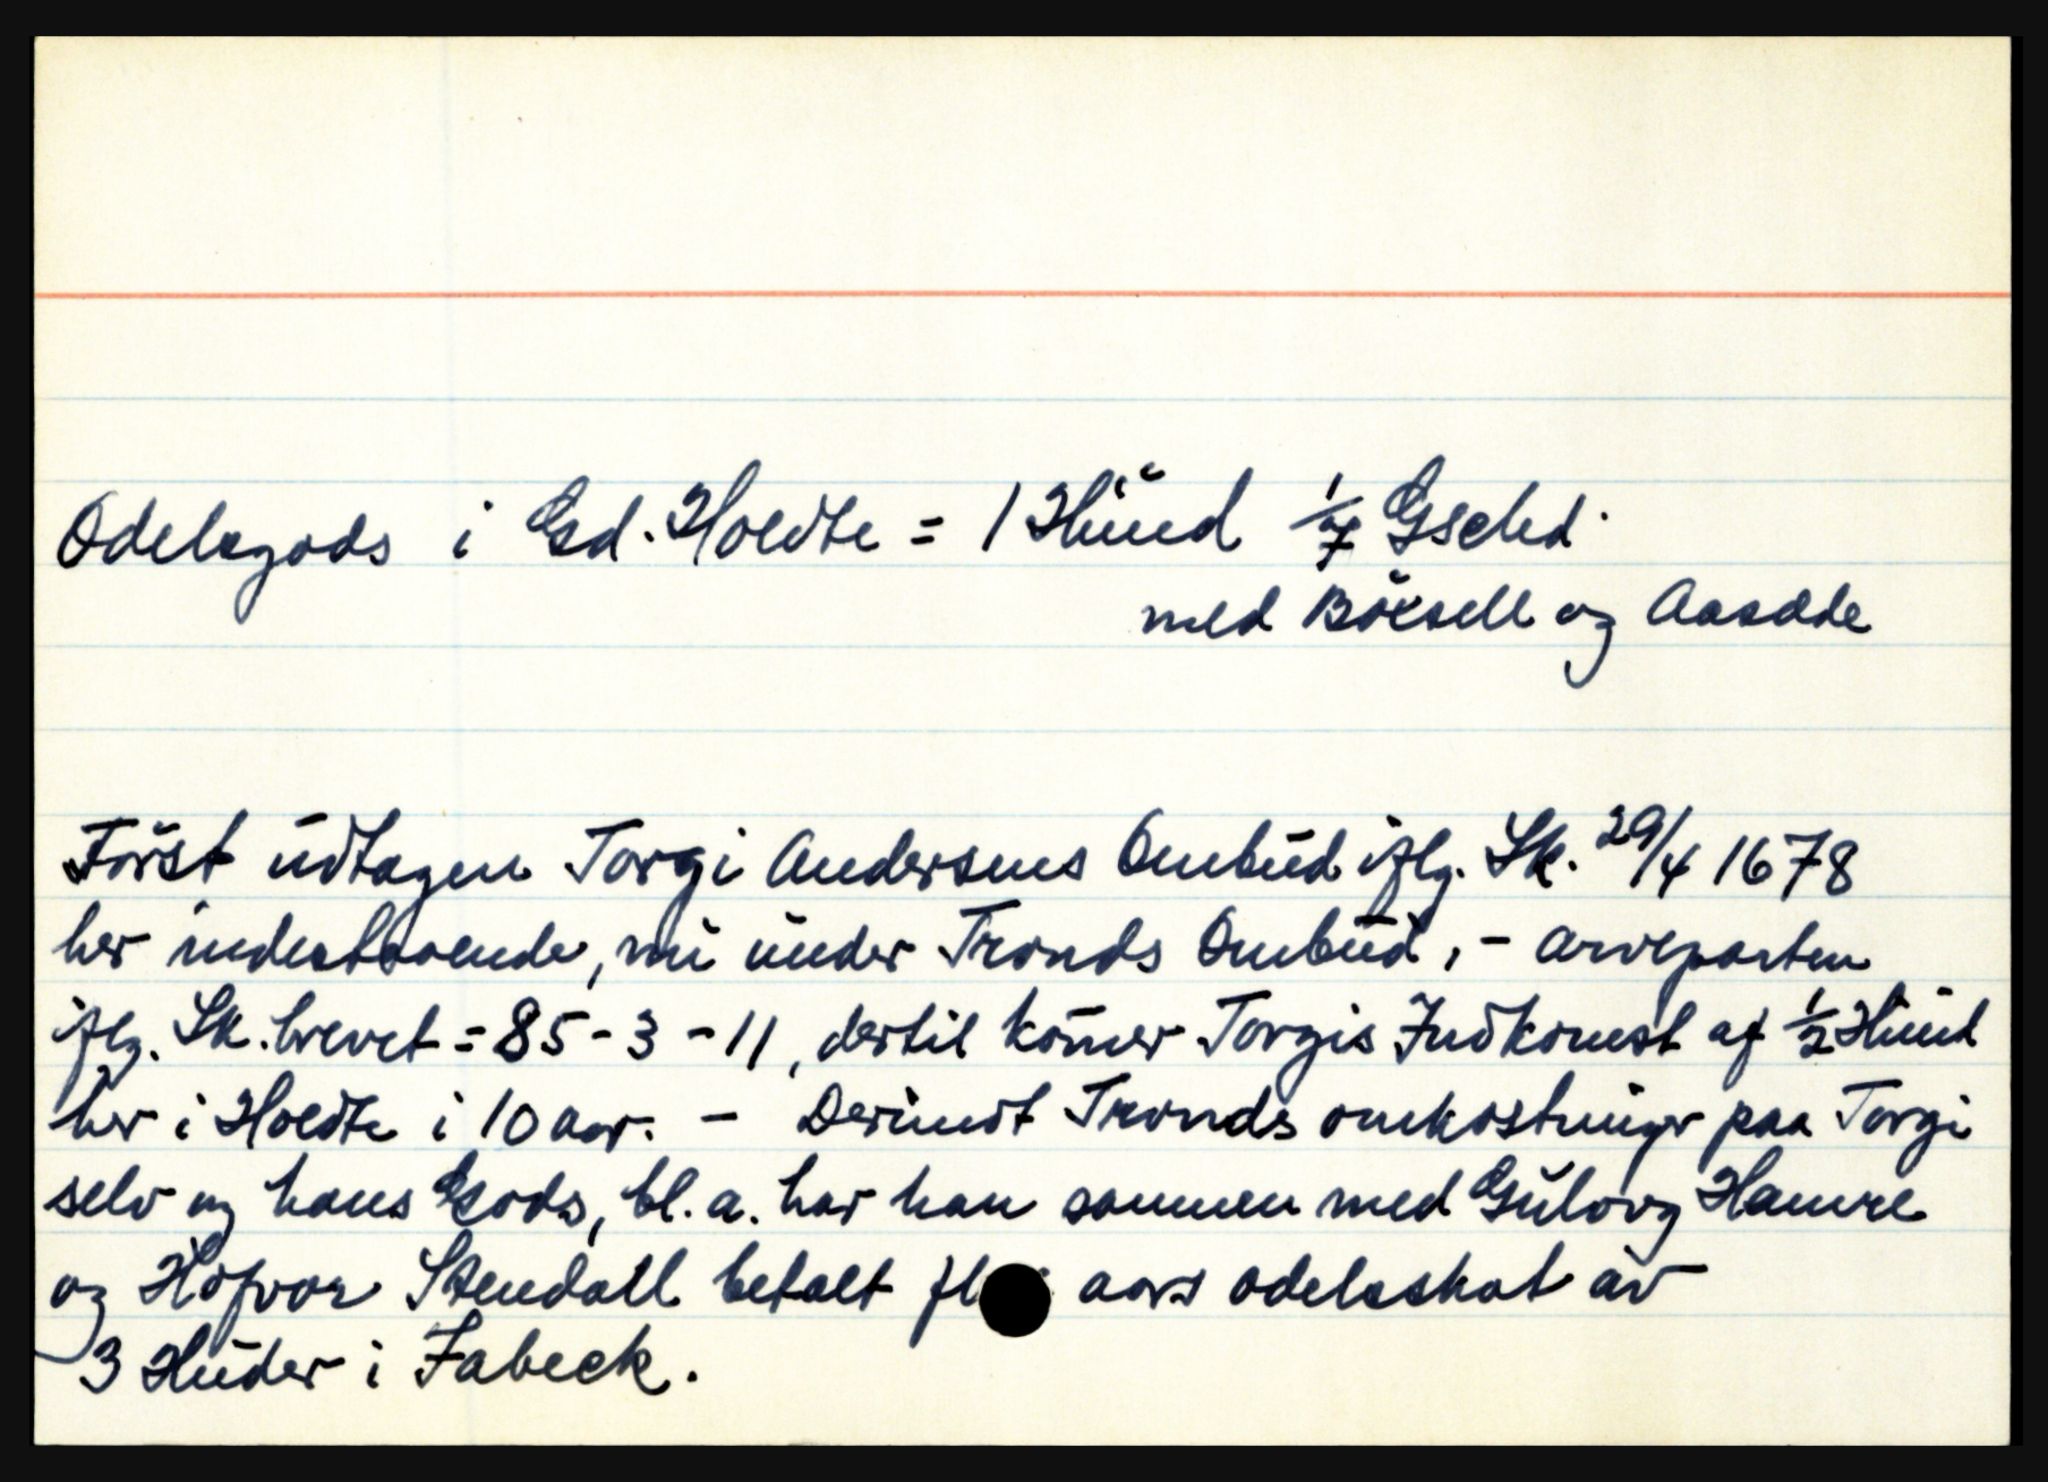 Odelsgods i Gsd. Holdte = 1 Hüd 1/7 Gschd.
med Böxell og Aasæde
Först üdtagen Torgi Andersens Ombüd iflg. Sk. 29/4 1678
her indestaaende, nü ünder Tronds Ombüd, - arveparten
iflg. Sk.brevet = 85-3-11, dertil kom̄er Torgis Indkomst af 1/2 Hüd
her i Holdte i 10 aar. - Derimot Tronds omkostninger paa Torgi
selv og hans Gods, bl.a. har han sammen med Gülovg Hamre
og Höfvor Stendall betalt aars odelsskat av
3 Hüder i Fabeck.